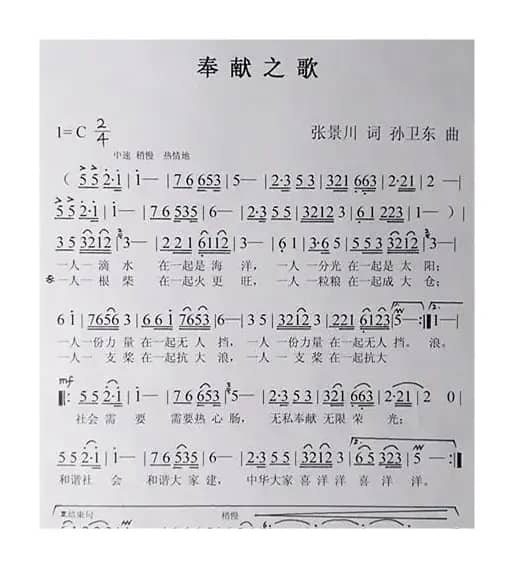 奉献之歌
1=C 2/4
张景川 词 孙卫东 曲
中速 稍慢 热情地
( 5 5 2·1 | 1— | 7 6 653 | 5— | 2·35 3 | 321 663 | 2·21 | 2— |
5 5 2·1 | 1— | 7 6 535 | 6— | 2·3 5 5 | 3212 3 | 6 1 223 | 1— ) |
3 5 3212 | 3— | 2 2 1 6112 | 3— | 6 1· | 3·5 3 | 3·235 3212 | 3— |
一人一滴水 在一起是海洋， 一人一分光 在一起是太阳；
一人一根柴 在一起火更旺， 一人一粒粮 在一起成大仓；
6 1 | 7656 3 | 6 6 1 7653 | 6— | 3 5 3212 3 | 221 6123 | 5— :| 1— |
一人一份力量 在一起无人挡， 一人一份力量 在一起无人挡。 浪。
一人一支桨 在一起抗大浪， 一人一支桨 在一起抗大
mf
|: 5 5 2·1 | 1— | 7 6 653 | 5— | 2·35 3 | 321 663 | 2·21 | 2 0 |
社会需要 需要热心肠， 无私奉献 无限荣光；
5 5 5 2·1 | 1— | 7 6 535 | 6— | 2·3 5 5 | 3212 3 | 6 5 323 | 5— :|
和谐社会 和谐大家建， 中华大家 喜洋洋 喜洋洋。
结束句 稍慢